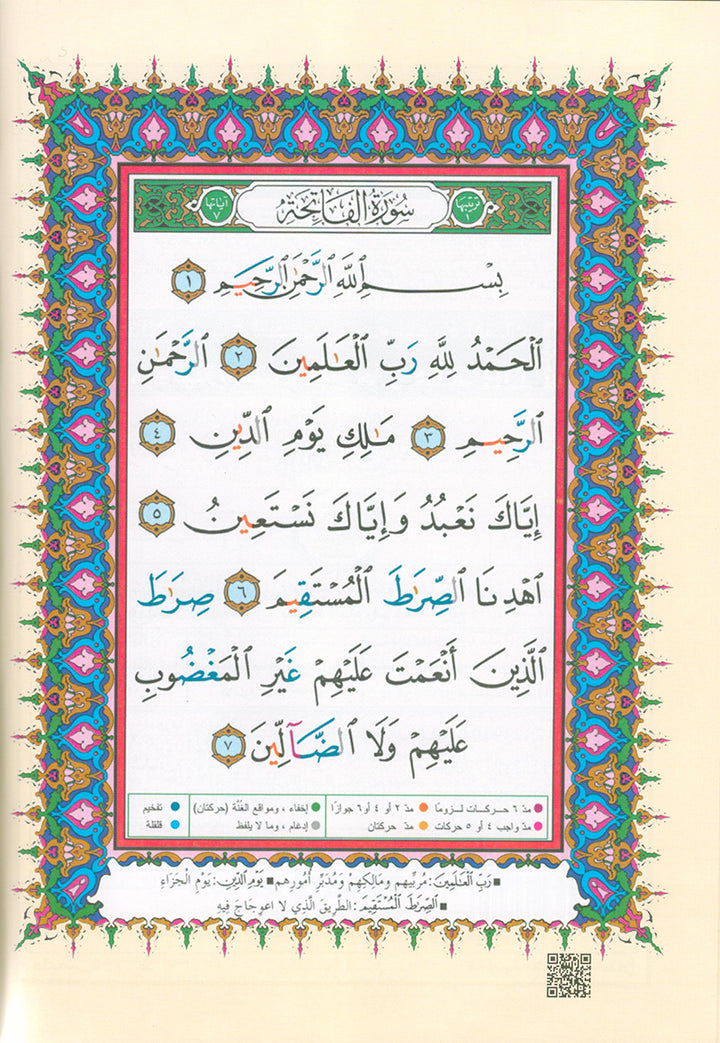 ترتيبها ١ سُورَةُ الفَاتِحَةِ آياتها ٧
بِسْمِ ٱللَّهِ ٱلرَّحْمَٰنِ ٱلرَّحِيمِ ١
ٱلْحَمْدُ لِلَّهِ رَبِّ ٱلْعَٰلَمِينَ ٢ ٱلرَّحْمَٰنِ
ٱلرَّحِيمِ ٣ مَٰلِكِ يَوْمِ ٱلدِّينِ ٤
إِيَّاكَ نَعْبُدُ وَإِيَّاكَ نَسْتَعِينُ ٥
ٱهْدِنَا ٱلصِّرَٰطَ ٱلْمُسْتَقِيمَ ٦ صِرَٰطَ
ٱلَّذِينَ أَنْعَمْتَ عَلَيْهِمْ غَيْرِ ٱلْمَغْضُوبِ
عَلَيْهِمْ وَلَا ٱلضَّآلِّينَ ٧
مدّ ٦ حركات لزومًا مدّ ٢ أو ٤ أو ٦ جوازًا إخفاء، ومواقع الغُنَّة (حركتان) تفخيم
مدّ واجب ٤ أو ٥ حركات مدّ حركتان إدغام، وما لا يلفظ قلقلة
رَبِّ ٱلْعَٰلَمِينَ: مُرَبِّيهِم ومَالِكِهِمْ وَمُدَبِّرِ أُمُورِهِم يَوْمِ ٱلدِّينِ: يَوْمِ الْجَزَاءِ
ٱلصِّرَٰطَ ٱلْمُسْتَقِيمَ: الطَّرِيقَ الَّذِي لا اعوِجَاجَ فِيهِ